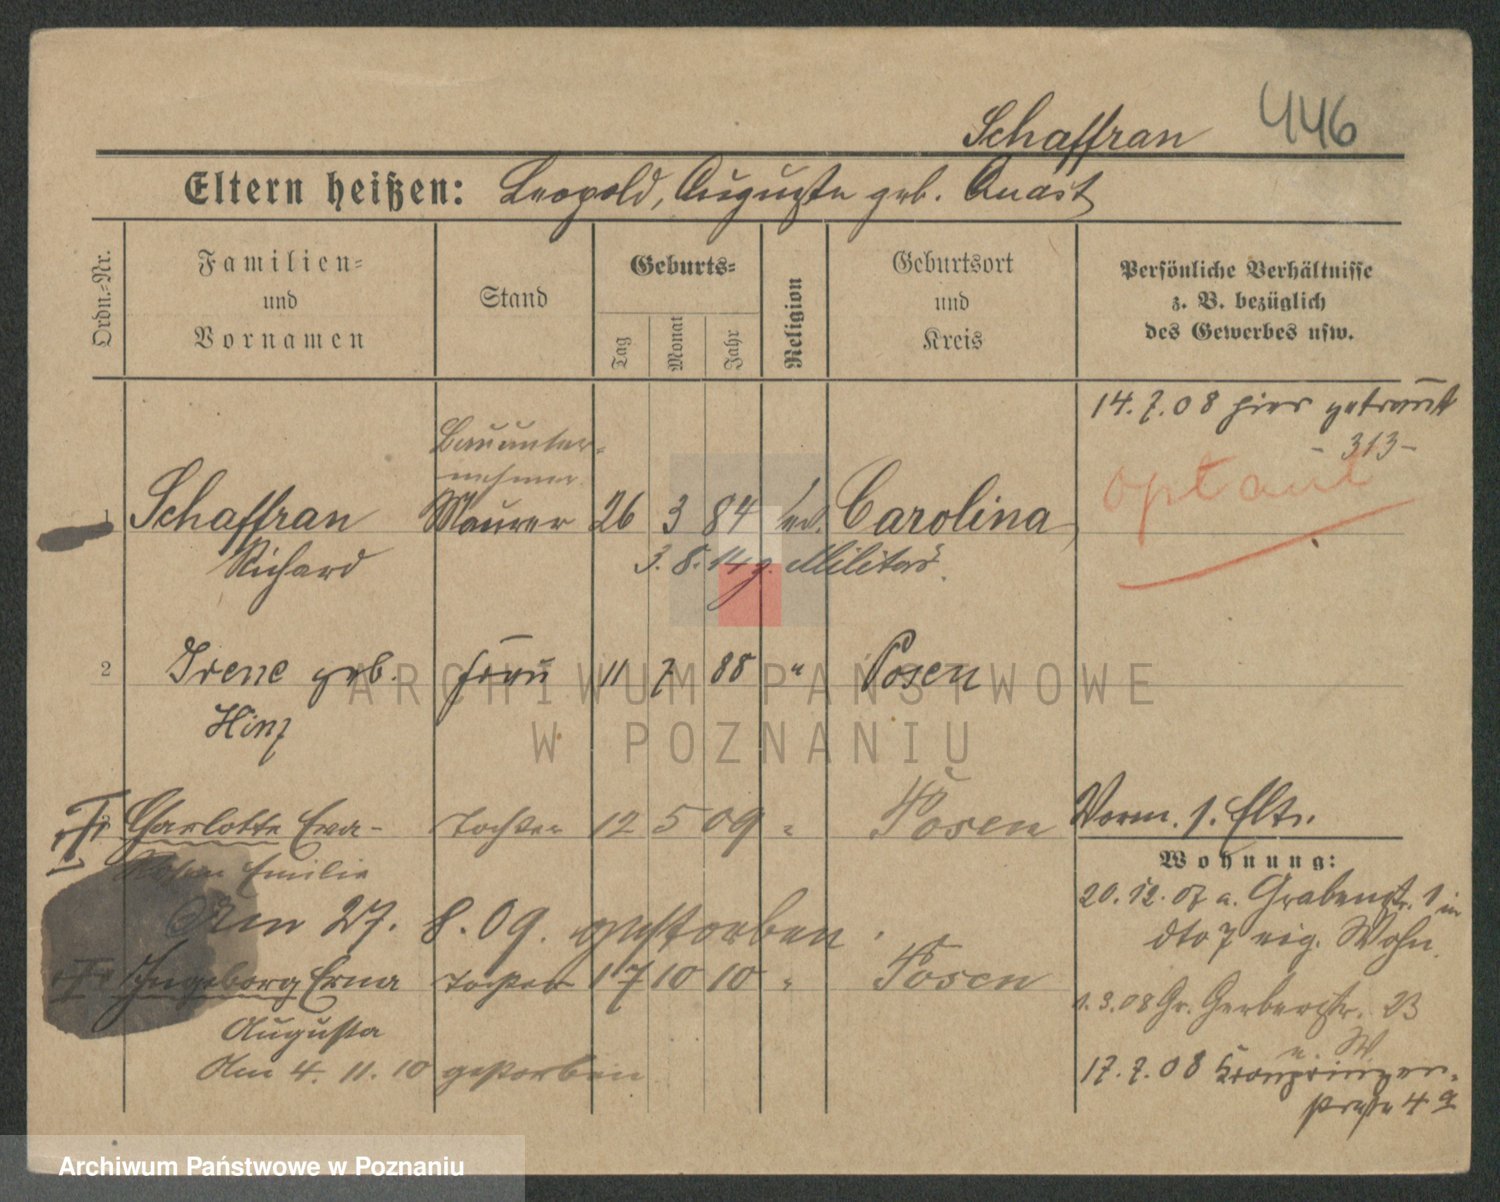 446
Schaffran
Eltern heißen: Leopold, Auguste geb. Quast
Ordn.-Nr.
Familien-
und
Vornamen
Stand
Geburts-
Tag
Monat
Jahr
Religion
Geburtsort
und
Kreis
Persönliche Verhältnisse
z. B. bezüglich
des Gewerbes usw.
14. 7. 08 hier getraut
- 313 -
Optant
Bauunter-
nehmer
1 Schaffran Maurer 26 3 84 ev. Carolina
Richard 3. 8. 14 z. Militär.
2 Irene geb. Frau 11 7 88 " Posen
Hinz
ARCHIWUM PAŃSTWOWE
W POZNANIU
3 Charlotte Eva- Tochter 12 5 09 " Posen Vorm. s. Eltr.
Emilie
Wohnung:
Am 27. 8. 09. gestorben.
20. 12. 07 a. Grabenstr. 1 in
dto 7 eig. Wohn.
Ingeborg Erna Tochter 17 10 10 " Posen
1. 3. 08 Gr. Gerberstr. 23
Augusta
Am 4. 11. 10 gestorben
17. 7. 08 Kronprinzen-
straße 4 a
Archiwum Państwowe w Poznaniu